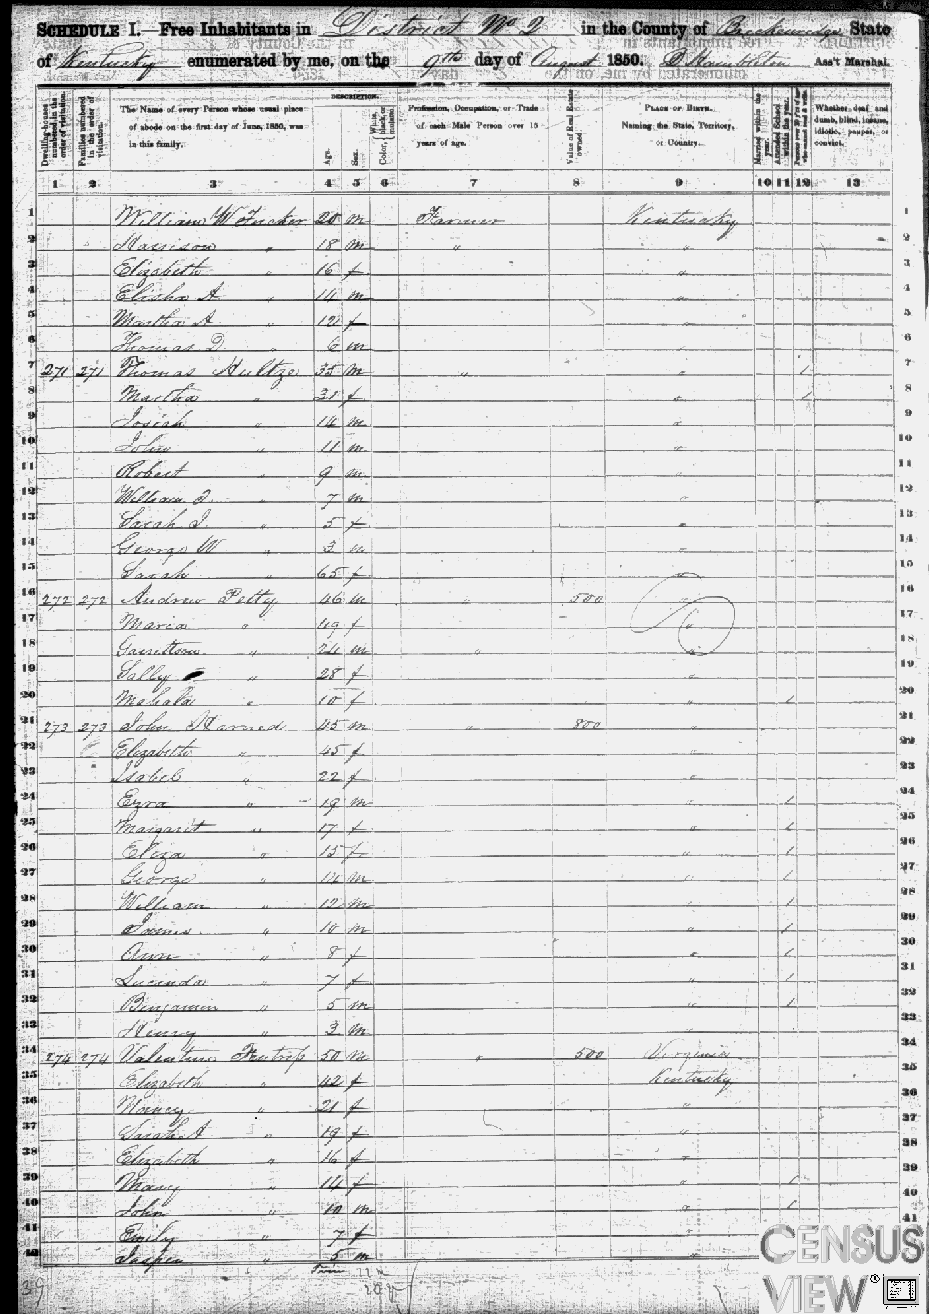 SCHEDULE I.—Free Inhabitants in District No 2 in the County of Breckenridge State
of Kentucky enumerated by me, on the 9th day of August 1850. Ass't Marshal.
DESCRIPTION.
Dwelling-houses numbered in the order of visitation. Families numbered in the order of visitation. The Name of every Person whose usual place of abode on the first day of June, 1850, was in this family. Age. Sex. Color, White, black, or mulatto. Profession, Occupation, or Trade of each Male Person over 15 years of age. Value of Real Estate owned. PLACE OF BIRTH. Naming the State, Territory, or Country. Married within the year. Attended School within the year. Persons over 20 y'rs of age who cannot read & write. Whether deaf and dumb, blind, insane, idiotic, pauper, or convict.
1 2 3 4 5 6 7 8 9 10 11 12 13
1 William W Tucker 20 m Farmer Kentucky 1
2 Harrison " 18 m " " 2
3 Elizabeth " 16 f " 3
4 Elisha A " 14 m " 4
5 Martha A " 12 f " 5
6 Thomas D. " 6 m " 6
7 271 271 Thomas 35 m " " 1 7
8 Martha " 31 f " 1 8
9 Josiah " 14 m " 9
10 John " 11 m " 10
11 Robert " 9 m " 11
12 William " 7 m " 12
13 Sarah J. " 5 f " 13
14 George W " 3 m " 14
15 Sarah " 65 f " 15
16 272 272 Andrew Petty 46 m " 500 16
17 Maria " 49 f " 17
18 24 m " " 18
19 Sally " 28 f " 19
20 Mahala " 10 f " 1 20
21 273 273 John 45 m " 800 " 21
22 Elizabeth " 45 f " 22
23 Isabel " 22 f " 23
24 Ezra " 19 m " 1 24
25 Margaret " 17 f " 1 25
26 Eliza " 15 f " 1 26
27 George " 14 m " 1 27
28 William " 12 m " 1 28
29 James " 10 m " 1 29
30 Ann " 8 f " 1 30
31 Lucinda " 7 f " 1 31
32 Benjamin " 5 m " 1 32
33 Henry " 3 m " 33
34 274 274 Valentine 50 m " 500 Virginia 34
35 Elizabeth " 42 f Kentucky 35
36 Nancy " 21 f " 36
37 Sarah A " 19 f " 37
38 Elizabeth " 16 f " 38
39 Mary " 14 f " 1 39
40 John " 10 m " 1 40
41 Emily " 7 f 41
42 " 5 m "
CENSUS
VIEW®